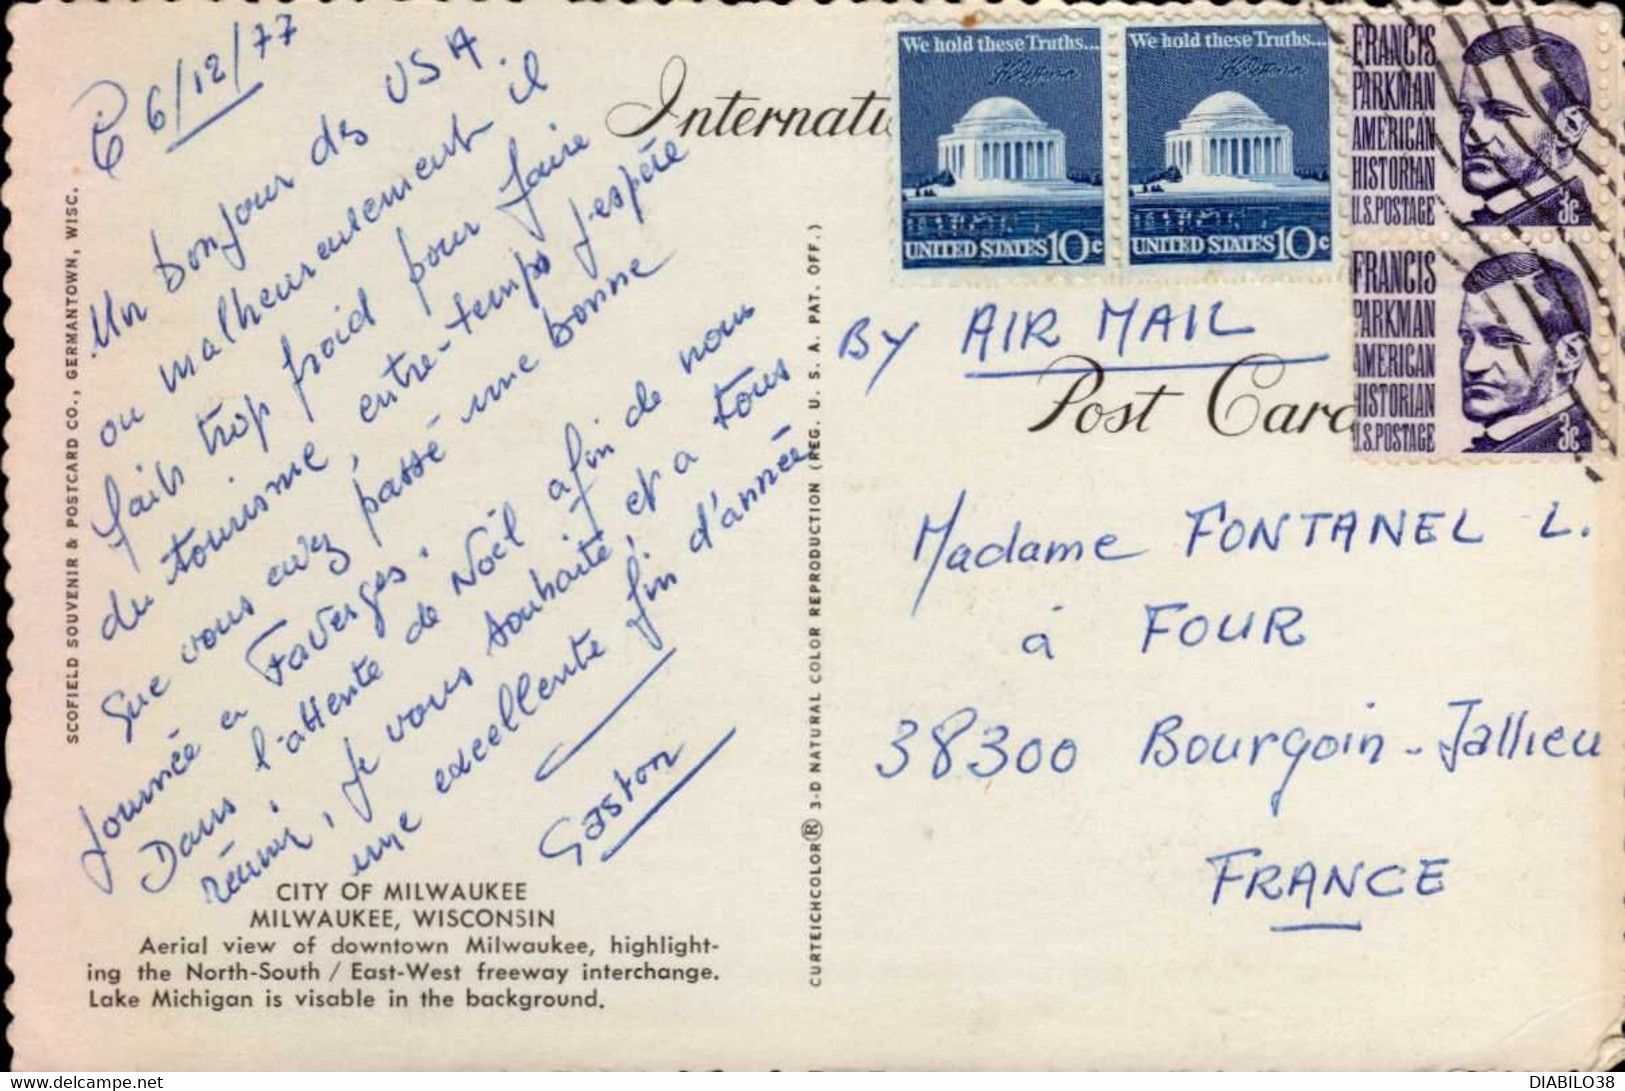 Le 6/12/77
Un bonjour des USA.
ou malheureusement il
fait trop froid pour faire
du tourisme, entre-temps j'espére
que vous avez passé une bonne
journée a Faverges.
Dans l'attente de Noël afin de nous
réunir, je vous souhaite, et a tous
une excellente fin d'année
Gaston
CITY OF MILWAUKEE
MILWAUKEE, WISCONSIN
Aerial view of downtown Milwaukee, highlight-
ing the North-South / East-West freeway interchange.
Lake Michigan is visable in the background.
SCOFIELD SOUVENIR & POSTCARD CO., GERMANTOWN, WISC.
CURTEICHCOLOR® 3-D NATURAL COLOR REPRODUCTION (REG. U. S. A. PAT. OFF.)
Internati
Post Card
We hold these Truths...
UNITED STATES 10c
We hold these Truths...
UNITED STATES 10c
FRANCIS
PARKMAN
AMERICAN
HISTORIAN
U.S. POSTAGE 3c
FRANCIS
PARKMAN
AMERICAN
HISTORIAN
U.S. POSTAGE 3c
BY AIR MAIL
Madame FONTANEL L.
à FOUR
38300 Bourgoin-Jallieu
FRANCE
DIABILO38